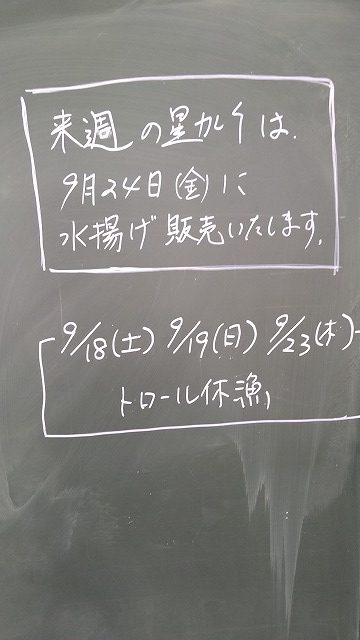 来週の星カレイは、
9月24日(金)に
水揚げ販売いたします。
9/18(土) 9/19(日) 9/23(木)
トロール休漁